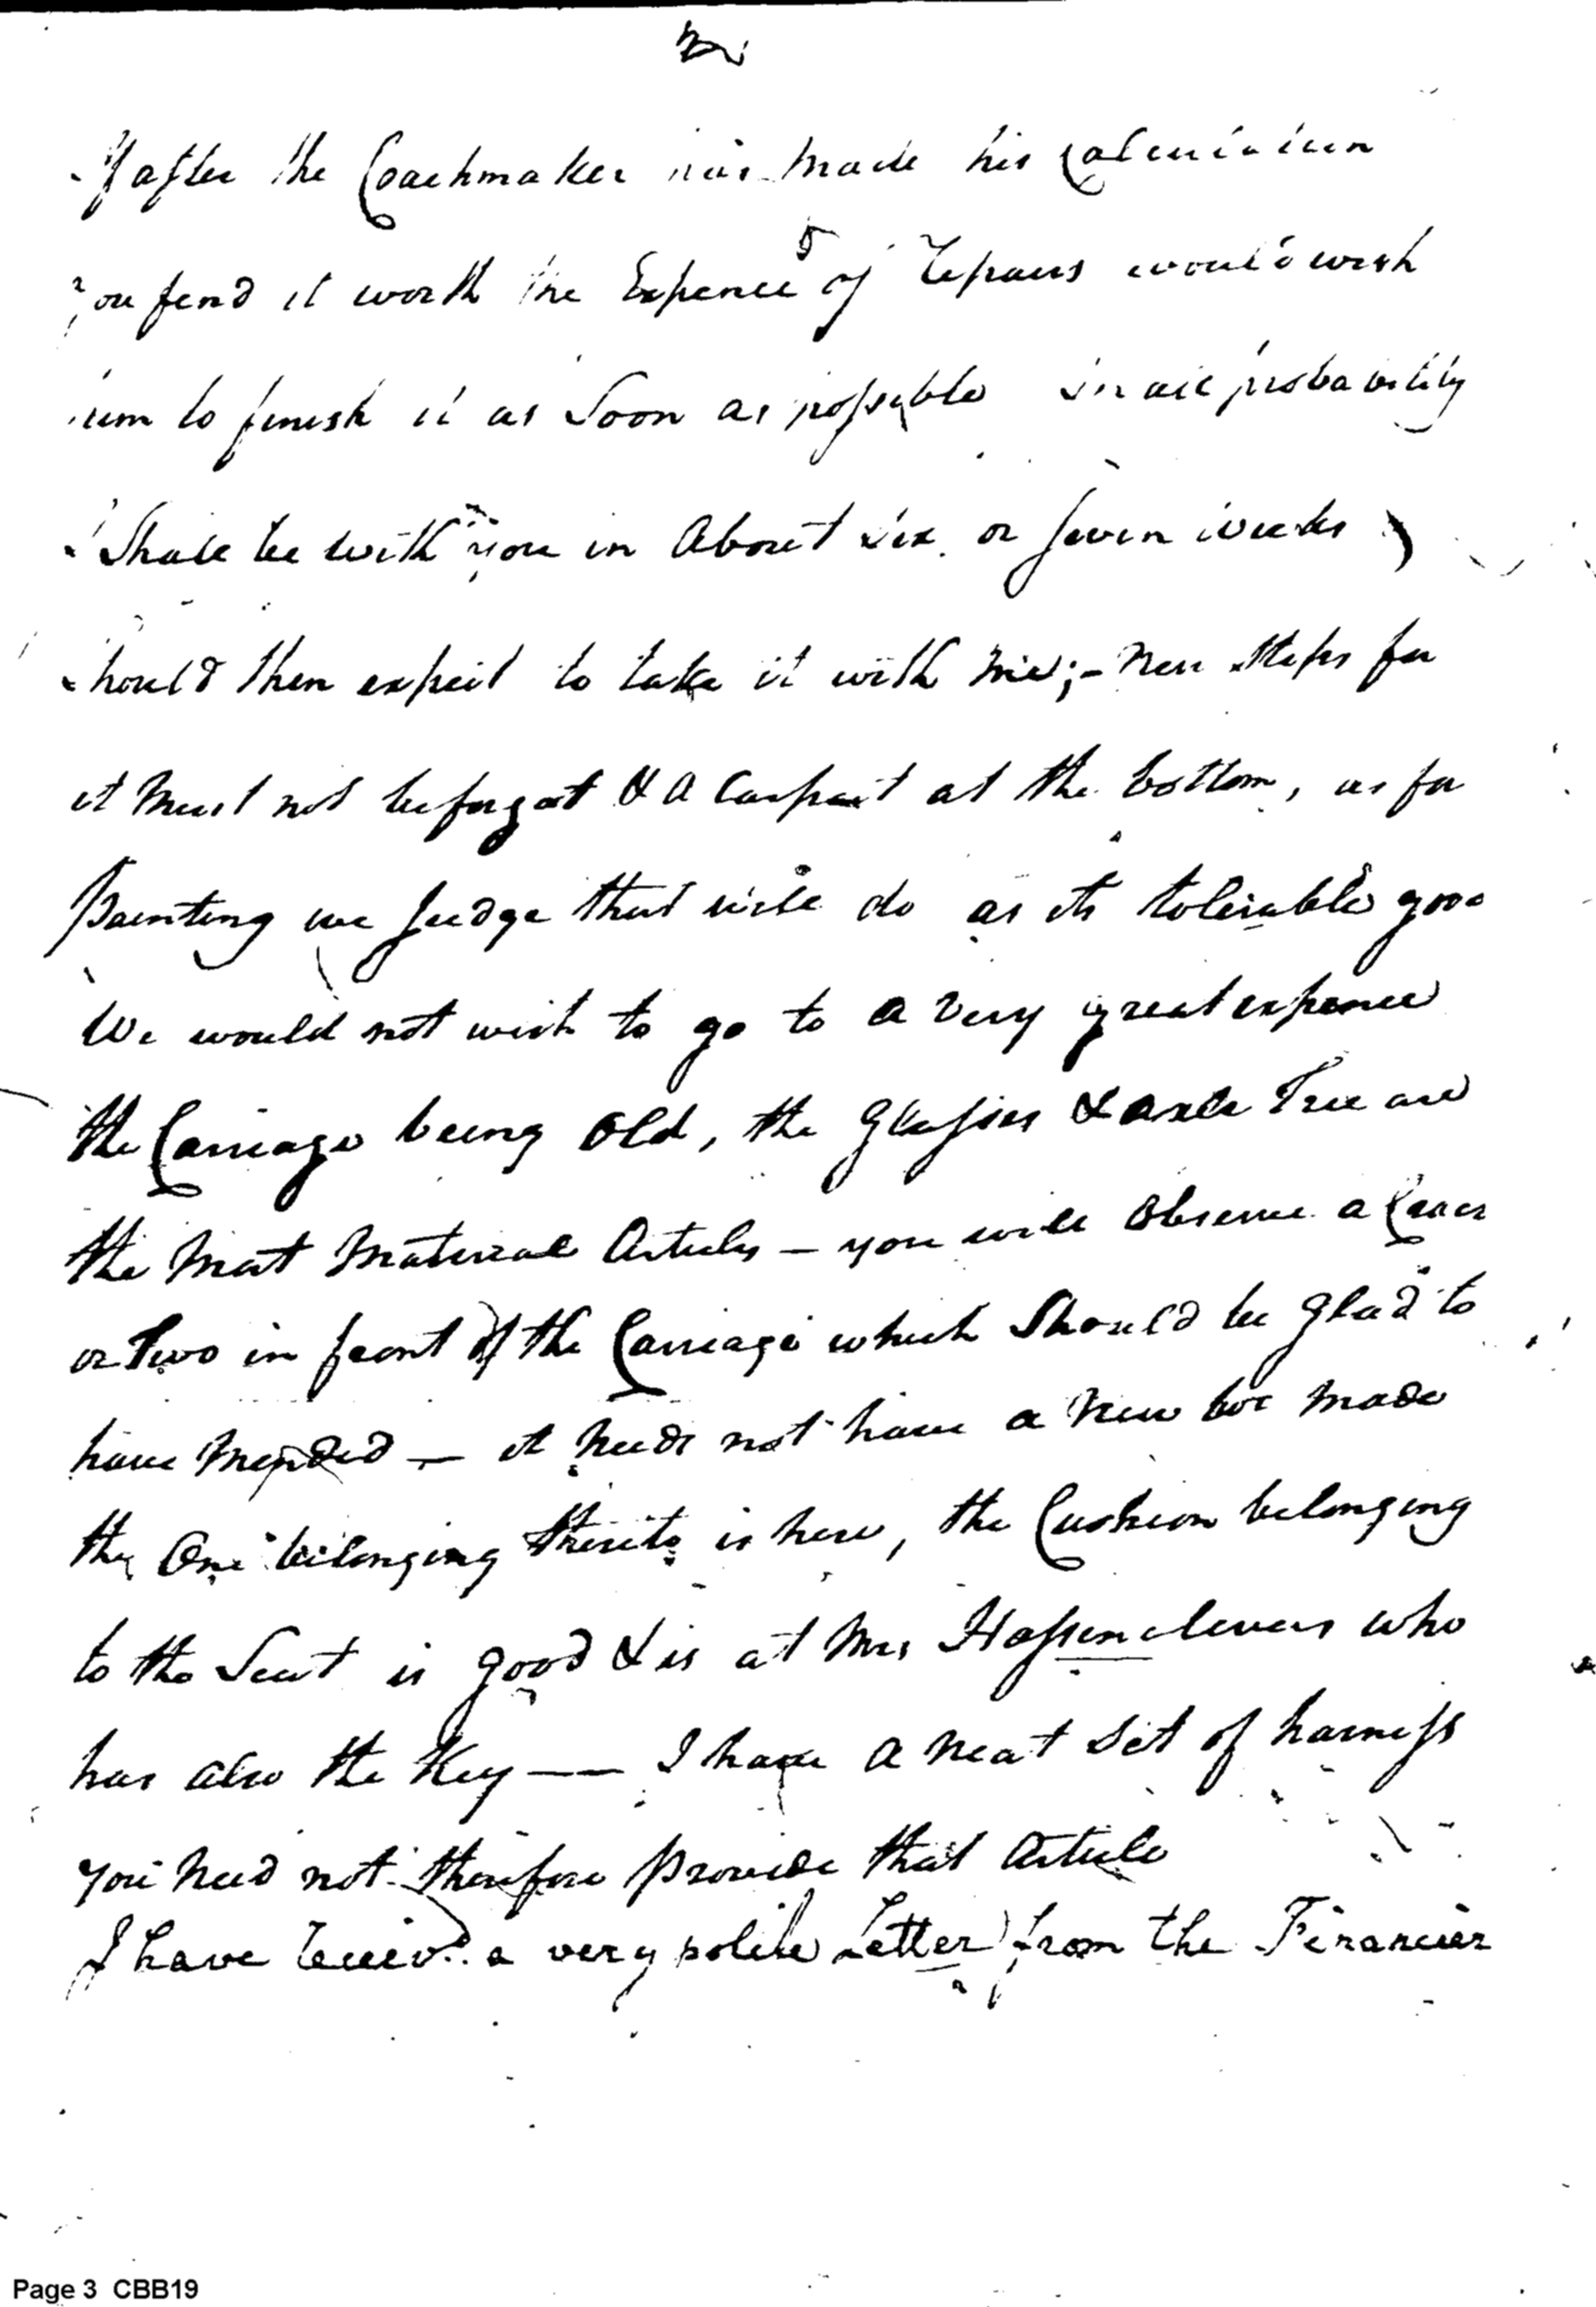 3
If after the Coachmaker has made his Calculation
you find it worth the Expence of repairs would wish
him to finish it as Soon as possible in all probability
I Shall be with you in About six or seven weeks
should then expect to take it with me;- New Steps for
it Must not be forgot & a Carpet at the bottom, as for
Painting we Judge that will do as its tolerable good
We would not wish to go to a very great expence
the Carriage being Old, the Glasses & axle Tree are
the Most Material Articles - you will Observe a Crack
or Two in front of the Carriage which Should be glad to
have Mended - it Needs not have a New box made
the One belonging thereto is here, the Cushion belonging
to the Seat is good & is at Mrs Hassenclevers who
has also the Key -- I have a neat Set of harness
you Need not therefore provide that Article
I have receivd. a very polite Letter from the Financier
Page 3 CBB19